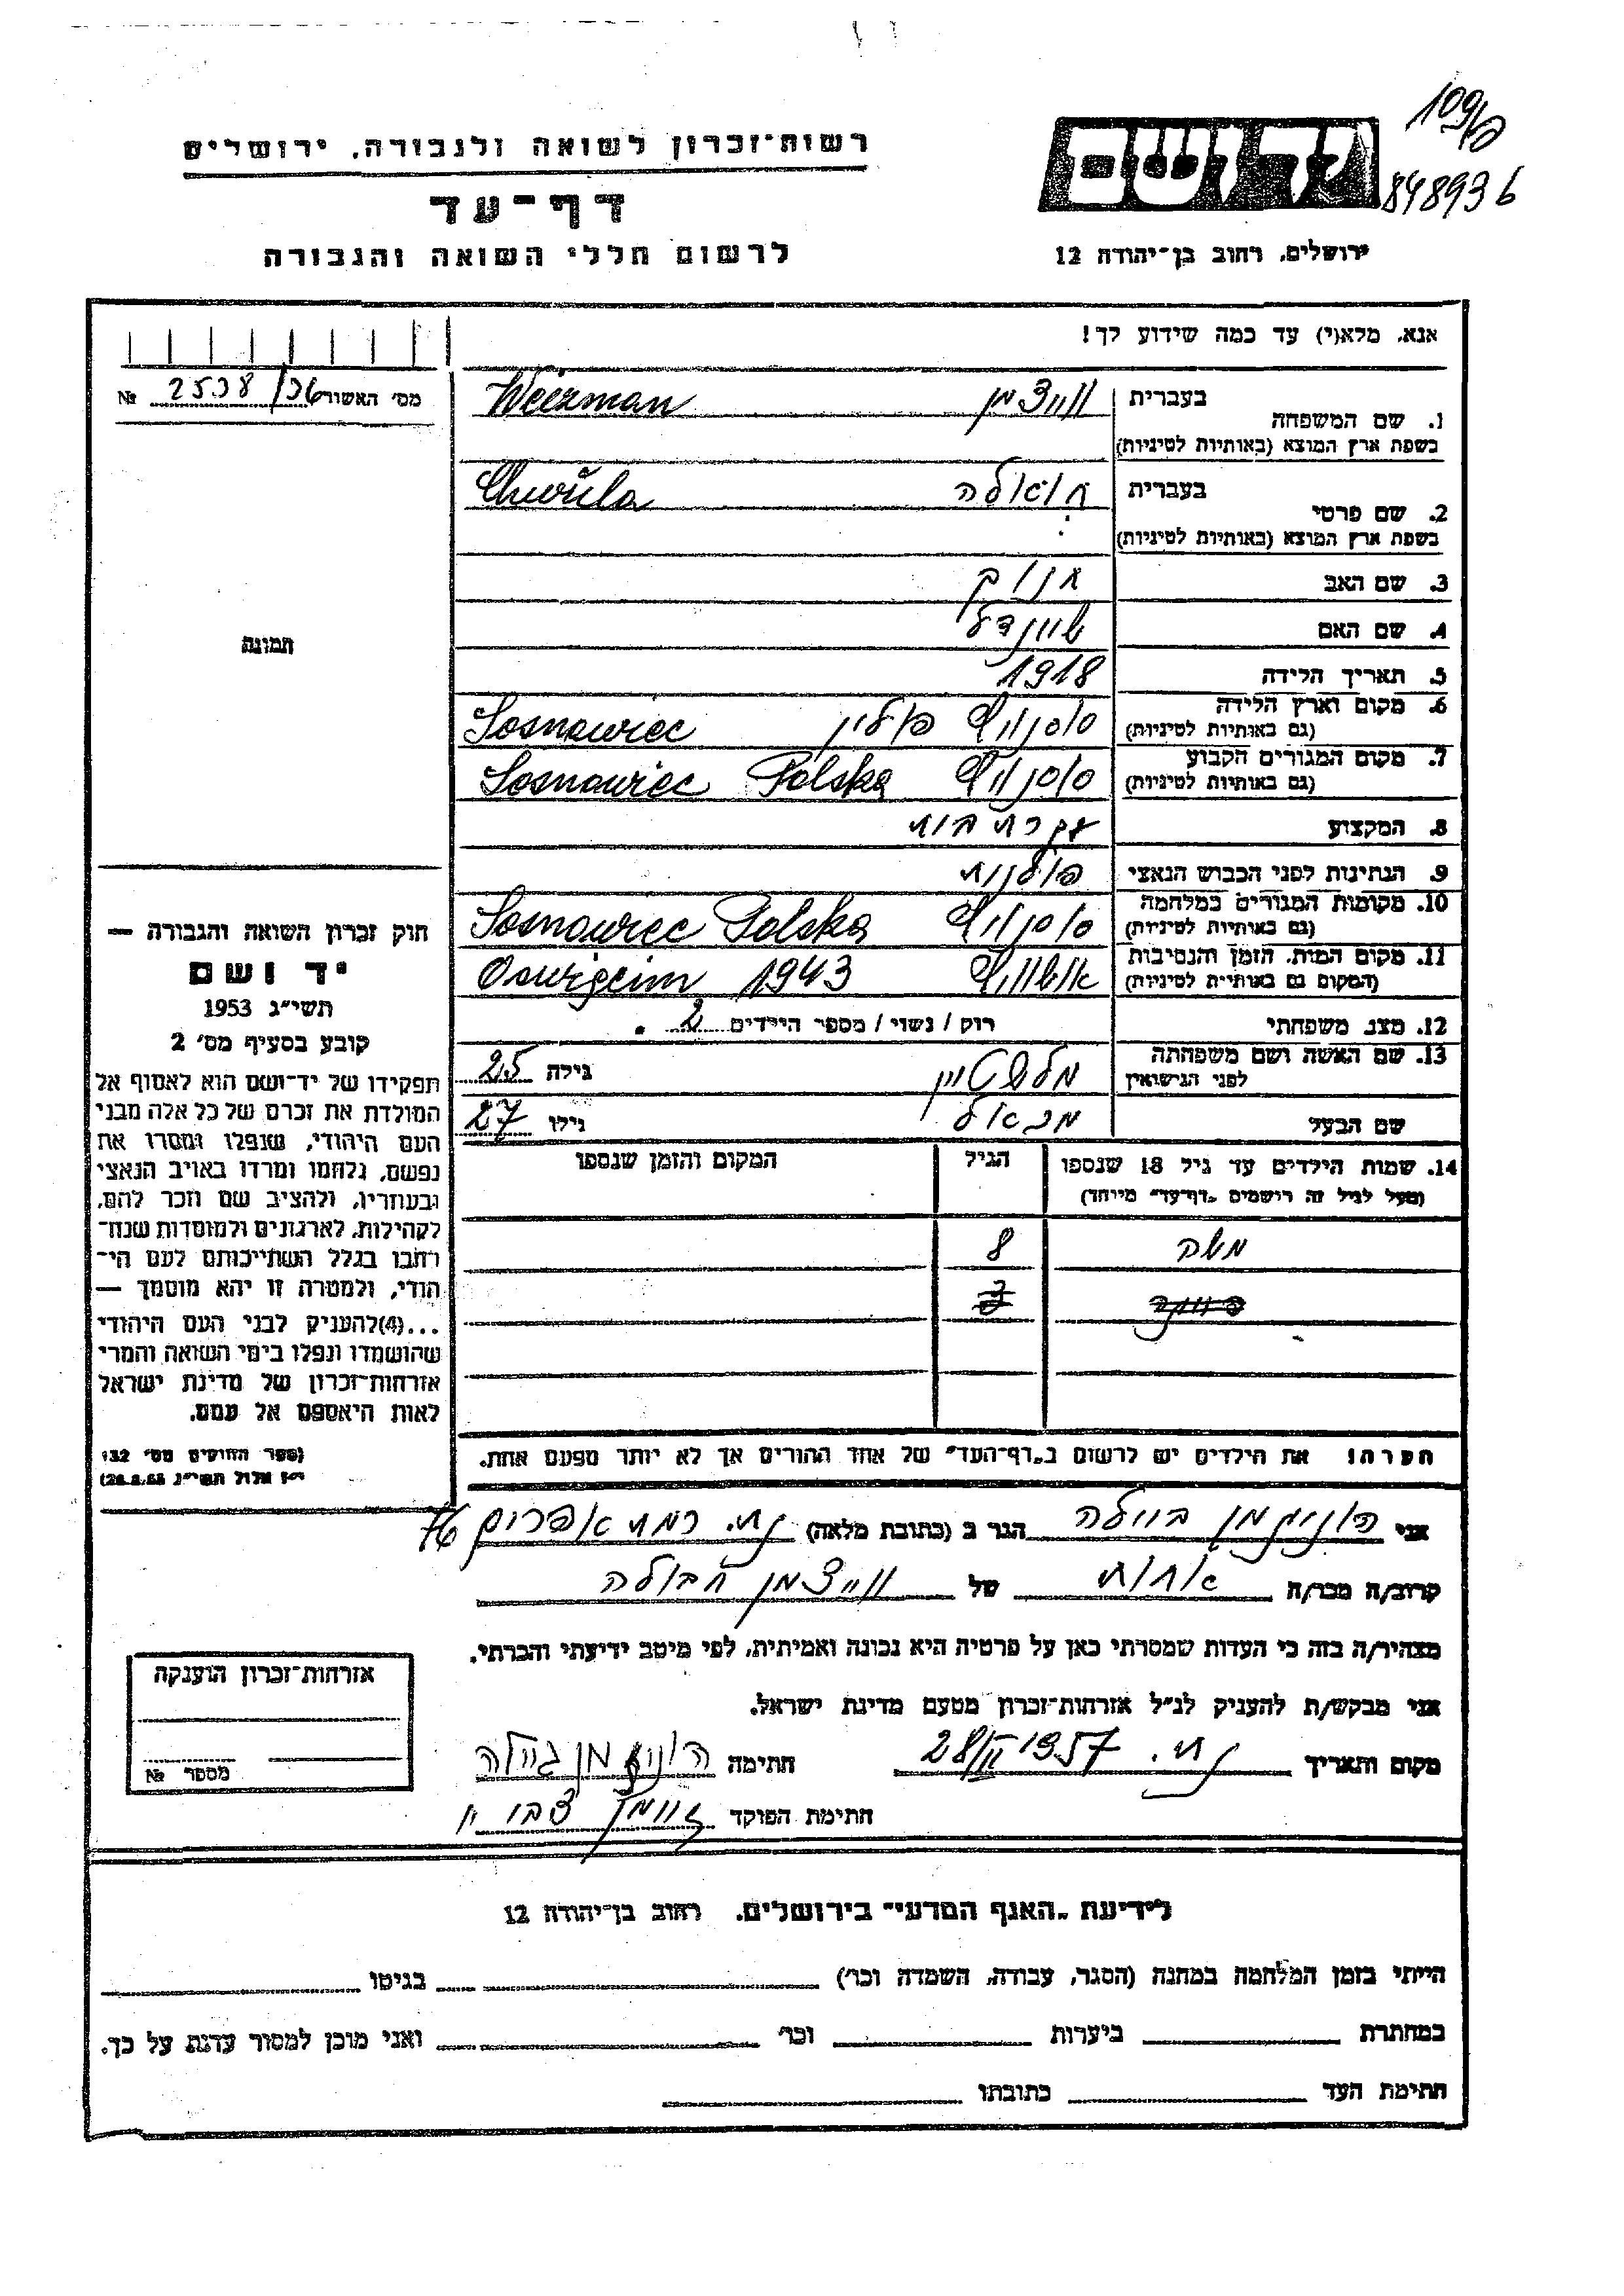 109/6
848936
יד ושם
ירושלים, רחוב בן־יהודה 12
רשות־זכרון לשואה ולגבורה, ירושלים
דף־עד
לרשום חללי השואה והגבורה
אנא, מלא(י) עד כמה שידוע לך!
מס׳ האשור 2538/36 №
1. שם המשפחה
בעברית ווייצמן Weizman
בשפת ארץ המוצא (באותיות לטיניות)
2. שם פרטי
בעברית Chwúla
בשפת ארץ המוצא (באותיות לטיניות)
3. שם האב
4. שם האם שיינדל
5. תאריך הלידה 1918
6. מקום וארץ הלידה סוסנוויץ פולין Sosnowiec
(גם באותיות לטיניות)
7. מקום המגורים הקבוע סוסנוויץ Sosnowiec Polska
(גם באותיות לטיניות)
8. המקצוע עקרת בית
9. הנתינות לפני הכבוש הנאצי פולנית
10. מקומות המגורים במלחמה סוסנוויץ Sosnowiec Polska
(גם באותיות לטיניות)
11. מקום המות, הזמן והנסיבות אושוויץ Oswigcim 1943
(המקום גם באותיות לטיניות)
12. מצב משפחתי רוק / נשוי / מספר הילדים 2.
13. שם האשה ושם משפחתה
לפני הנישואין גילה 25
שם הבעל גילו 27
14. שמות הילדים עד גיל 18 שנספו הגיל המקום והזמן שנספו
(מעל לגיל זה רושמים „דף־עד״ מייחד)
משה 8
הערה! את הילדים יש לרשום ב„דף־העד״ של אחד ההורים אך לא יותר מפעם אחת.
תמונה
חוק זכרון השואה והגבורה —
יד ושם
תשי״ג 1953
קובע בסעיף מס׳ 2
תפקידו של יד־ושם הוא לאסוף אל
המולדת את זכרם של כל אלה מבני
העם היהודי, שנפלו ומסרו את
נפשם, נלחמו ומרדו באויב הנאצי
ובעוזריו, ולהציב שם וזכר להם,
לקהילות, לארגונים ולמוסדות שנח־
רבו בגלל השתייכותם לעם הי־
הודי, ולמטרה זו יהא מוסמך —
...(4)להעניק לבני העם היהודי
שהושמדו ונפלו בימי השואה והמרי
אזרחות־זכרון של מדינת ישראל
לאות היאספם אל עמם.
(ספר החוקים מס׳ 132
י״ז אלול תשי״ג 28.8.53)
אני הגר ב (כתובת מלאה) נת. רמת אפרים 76
קרוב/ה מכר/ה אחות של ווייצמן חבולה
מצהיר/ה בזה כי העדות שמסרתי כאן על פרטיה היא נכונה ואמיתית, לפי מיטב ידיעתי והכרתי.
אני מבקש/ת להעניק לנ״ל אזרחות־זכרון מטעם מדינת ישראל.
מקום ותאריך נת. 28/II 1957 חתימה
חתימת הפוקד
אזרחות־זכרון הוענקה
מספר №
לידיעת „האגף המדעי״ בירושלים, רחוב בן־יהודה 12
הייתי בזמן המלחמה במחנה (הסגר, עבודה, השמדה וכר׳) בגיטו
במחתרת ביערות וכר׳ ואני מוכן למסור עדות על כך.
חתימת העד כתובתו